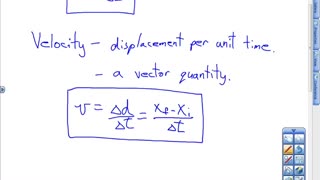 Velocity – displacement per unit time.
– a vector quantity.
v = Δd/Δt = xf - xi/Δt